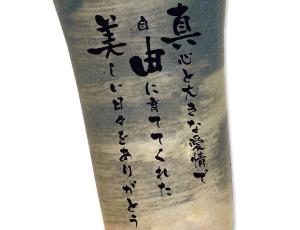 真心と大きな愛情で
自由に育ててくれた
美しい日々をありがとう